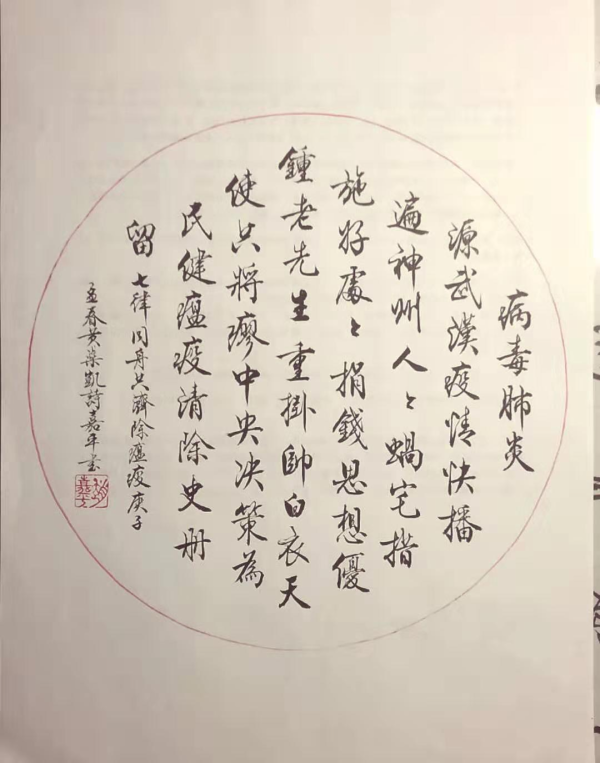 病毒肺炎
源武漢疫情快播
遍神州人々蝸宅措
施好處々捐錢思想優
鍾老先生重掛帥白衣天
使只將瘳中央决策為
民健瘟疫清除史册
留 七律同舟共濟除瘟疫庚子
孟春黄榮凱詩嘉平書